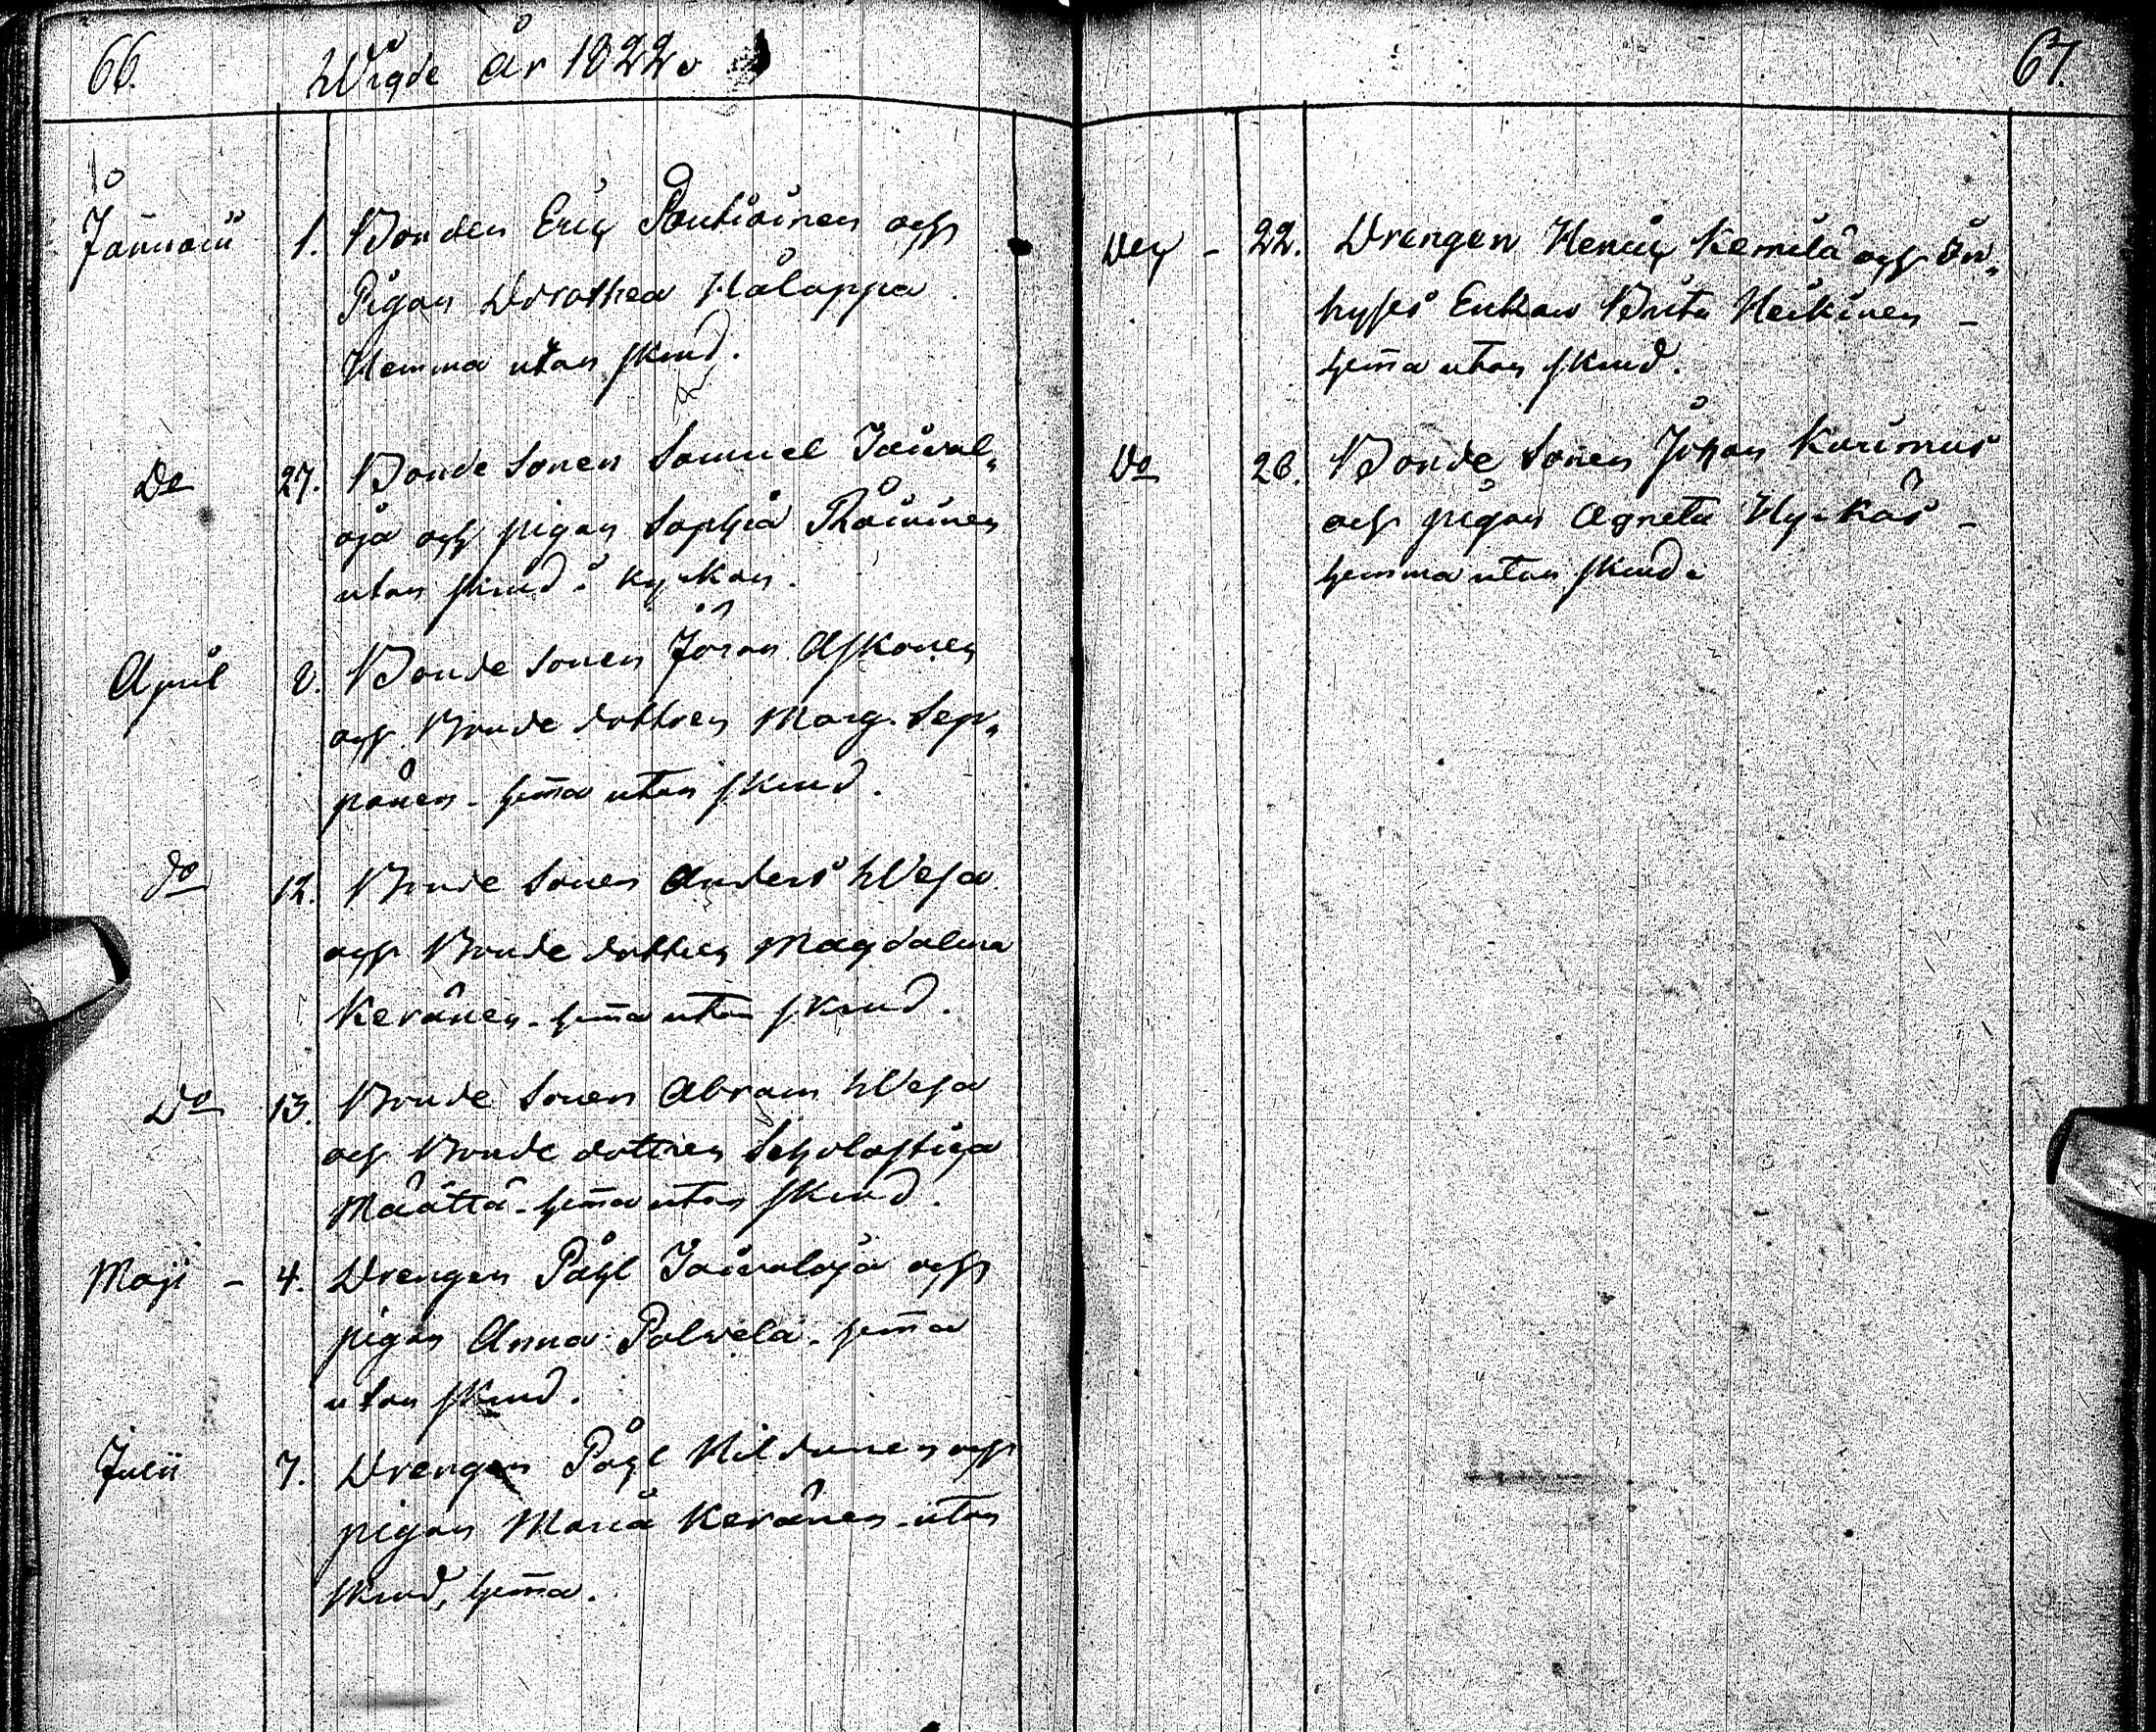 66.
Wigde år 1822.
Januarii 1. Bonden Eric Pontiainen och
Pigan Dorothea Halappa
Hemma utan skrud.
Do 27. Bonde Sonen Samuel Jaurak„
oja och pigan Sophia Räisinen
utan skrud i kyrkan.
April 8. Bonde Sonen Jöran Askanen
och Bonde dottren Marg. Sep„
pänen - hem̄a utan skrud.
do 12. Bonde Sonen Anders Wesa
och Bonde dottren Magdalena
Keränen - hem̄a utan skrud.
Do 13. Bonde Sonen Abram Wesa
och Bonde dottren Scholastica
Määttä - hem̄a utan skrud.
Maji - 4. Drengen Påhl och
pigan Anna Polvela - hem̄a
utan skrud.
Julii 7. Drengen Påhl och
pigan Maria Keränen - utan
skrud, hem̄a.
67.
Dec - 22. Drengen Henric Kemilä och In„
hyses Enkan Brita Heikinen -
hem̄a utan skrud.
Do 26. Bonde Sonen Johan Karimus
och pigan Agneta Hyrkäs -
hemma utan skrud.